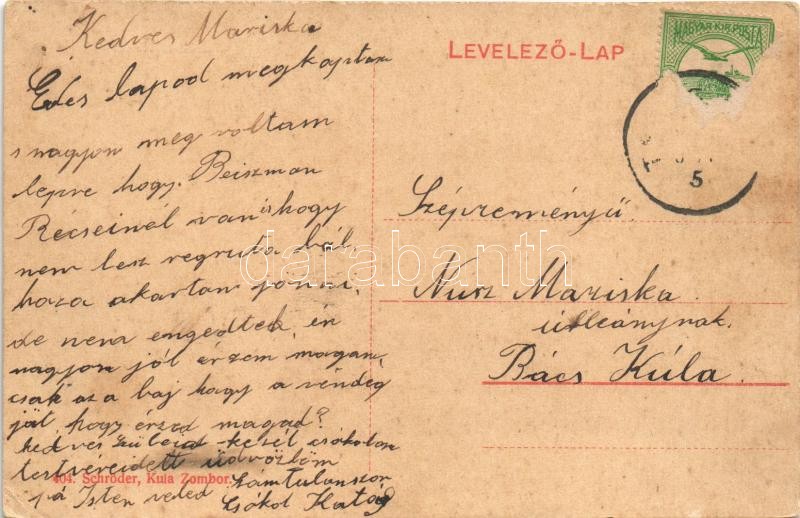 Kedves Mariska
Édes lapod megkaptam
s nagyon meg voltam
lepve hogy. Beiszman
Récseinel van is hogy
nem lesz regruta bál.
haza akartam jönni.
de nem engedtek, én
nagyon jól érzem magam,
csak az a baj hogy a vendég
hogy érzed magad?
kedves szüleid kezét csókolom
testvéreidet üdvözlöm
Isten veled Számtalanszor
Csókol Kató
404. Schröder, Kula Zombor.
LEVELEZŐ-LAP
MAGYAR KIR. POSTA
5
Szépreményű
Nusz Mariska
úrleánynak.
Bács Kúla.
darabanth